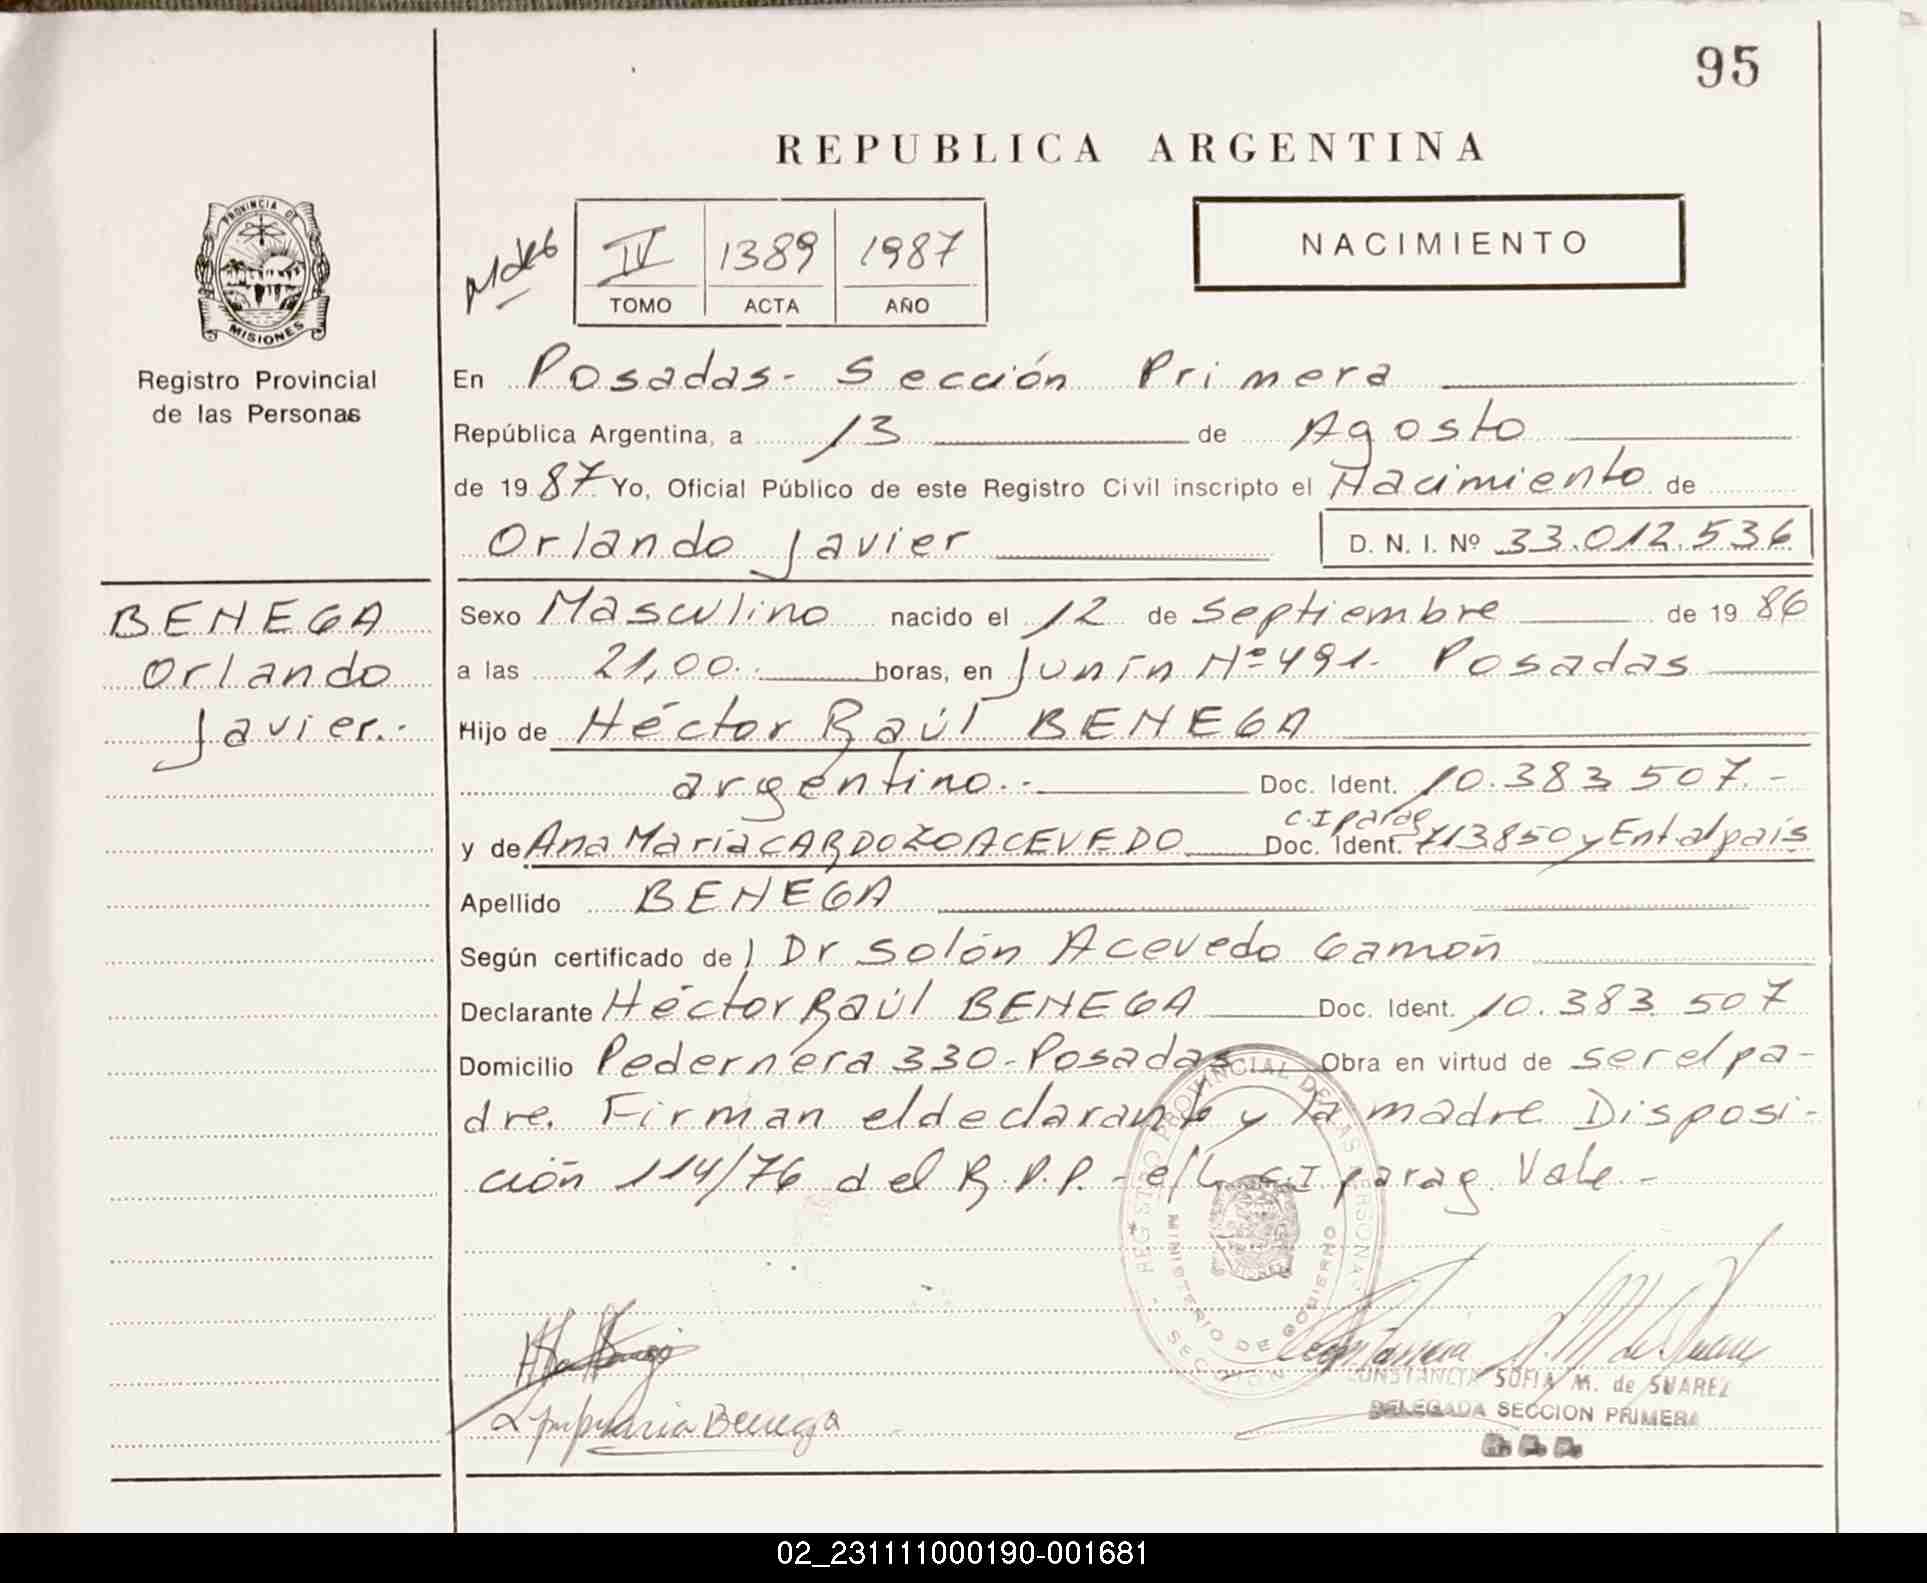 95
REPUBLICA ARGENTINA
PROVINCIA DE
MISIONES
Registro Provincial
de las Personas
IV 1389 1987
TOMO ACTA AÑO
NACIMIENTO
En Posadas - Sección Primera
República Argentina, a 13 de Agosto
de 1987 Yo, Oficial Público de este Registro Civil inscripto el Nacimiento de
Orlando Javier D. N. I. Nº 33.012.536
BENEGA
Orlando
Javier.-
Sexo Masculino nacido el 12 de Septiembre de 1986
a las 21,00 horas, en Junín Nº 491. Posadas
Hijo de Héctor Raúl BENEGA
argentino.- Doc. Ident. 10.383.507.-
C.I parag
y de Ana María CARDOZO ACEVEDO Doc. Ident. 713850 y Ent al país
Apellido BENEGA
Según certificado de) Dr Solón Acevedo Gamón
Declarante Héctor Raúl BENEGA Doc. Ident. 10.383.507
Domicilio Pedernera 330 - Posadas Obra en virtud de ser el pa-
dre. Firman el declarante y la madre Disposi-
ción 114/76 del R.P.P. - e/L. C.I parag. Vale -
REGISTRO PROVINCIAL DE LAS PERSONAS
MINISTERIO DE GOBIERNO
CONSTANCIA SOFIA M. de SUAREZ
DELEGADA SECCION PRIMERA
Benega
02_231111000190-001681